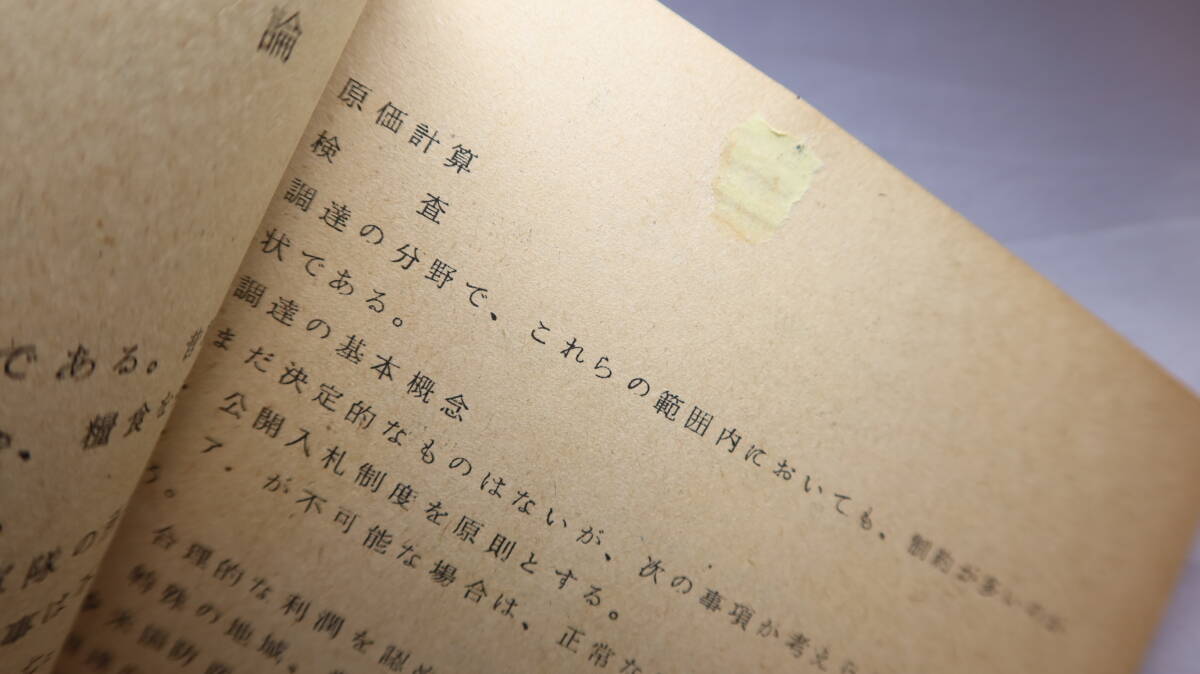 論
で ある。
糧食
隊の
事
原価計算
検　査
調達の分野で、これらの範囲内においても、制約が多いのが
状である。
調達の基本概念
まだ決定的なものはないが、次の事項が考えら
公開入札制度を原則とする。
ア.　が不可能な場合は、正常な
る。
合理的な利潤を認め
特殊の地域、
米国防